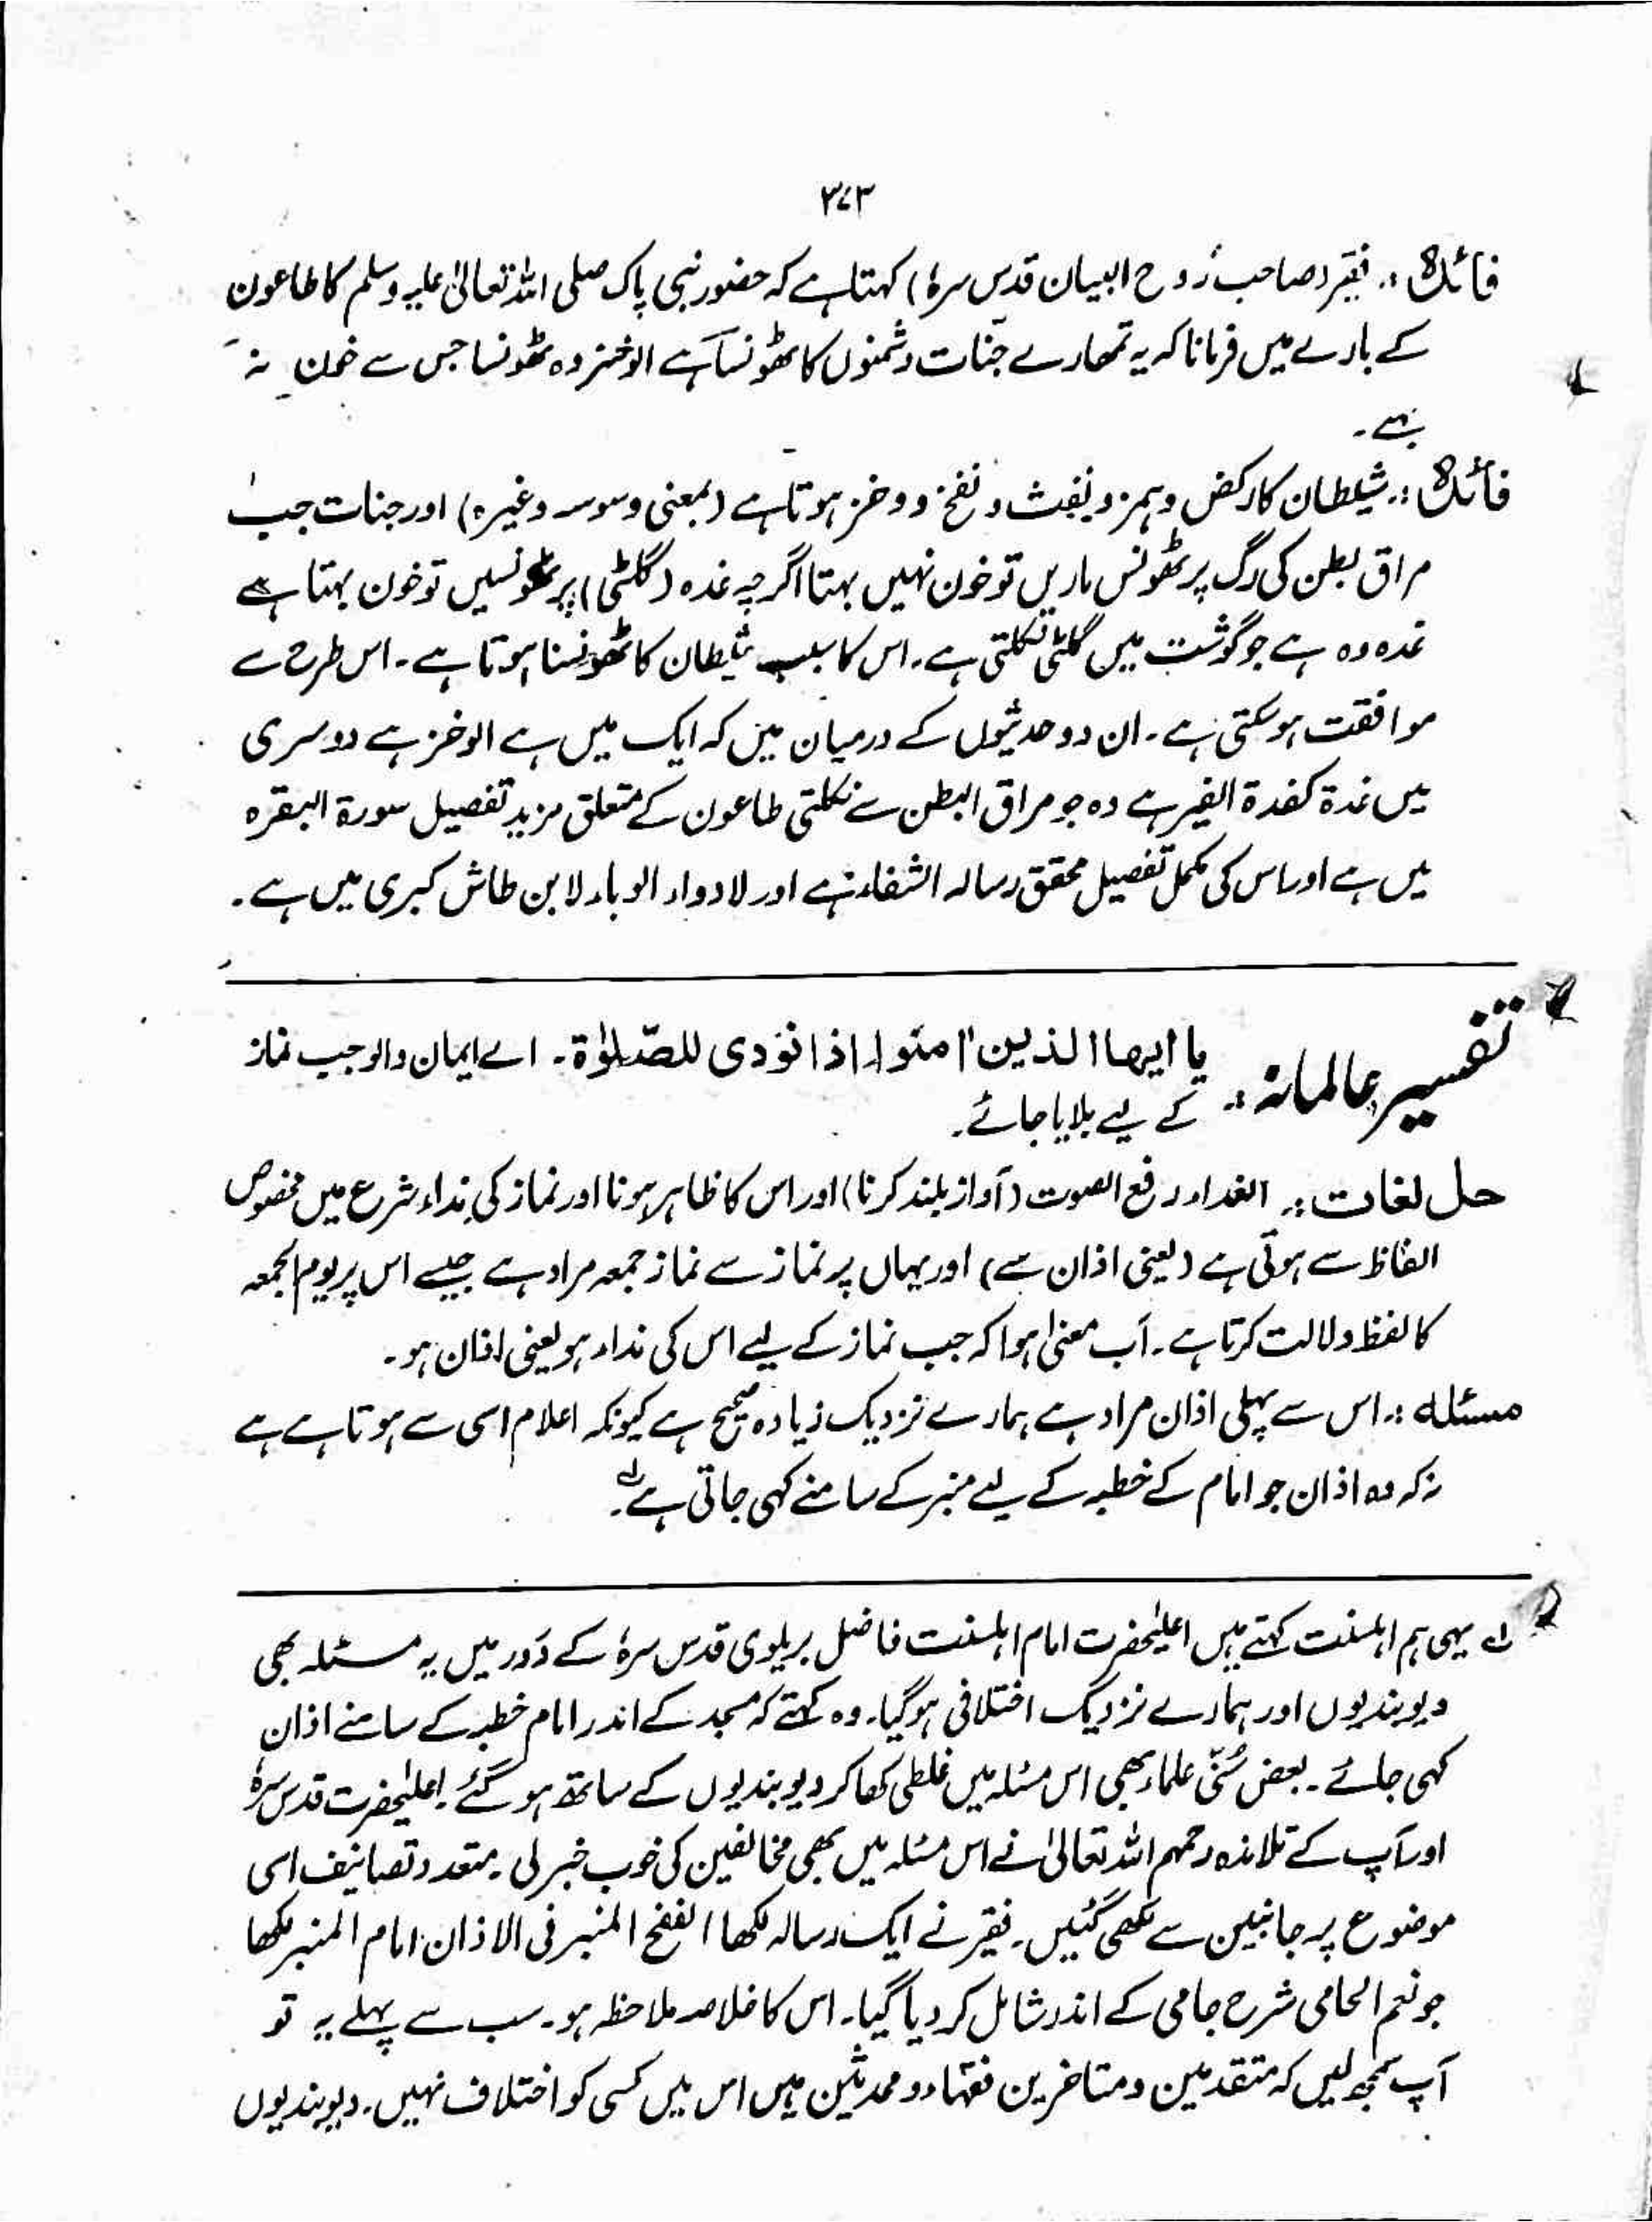 ۳۷۳
فائدہ :۔ فقیر (صاحب رُوح البیان قدس سرہٗ) کہتا ہے کہ حضور نبی پاک صلی اللہ تعالیٰ علیہ وسلم کا طاعون
کے بارے میں فرمانا کہ یہ تمھارے جنّات دشمنوں کا ٹھونسا ہے الوخز وہ ٹھونسا جس سے خون نہ
بہے۔
فائدہ :۔ شیطان کا رکض و ہمز و نفث و نفخ و وخز ہوتا ہے (بمعنی وسوسہ وغیرہ) اور جنات جب
مراق بطن کی رگ پر ٹھونس ماریں تو خون نہیں بہتا اگرچہ غدہ (گلٹی) پر ٹھونسیں تو خون بہتا ہے
غدہ وہ ہے جو گوشت میں گلٹی نکلتی ہے۔ اس کا سبب شیطان کا ٹھونسنا ہوتا ہے۔ اس طرح سے
موافقت ہو سکتی ہے۔ ان دو حدیثوں کے درمیان میں کہ ایک میں ہے الوخز ہے دوسری
میں غدۃ کغدۃ البعیر ہے وہ جو مراق البطن سے نکلتی طاعون کے متعلق مزید تفصیل سورۃ البقرہ
میں ہے اور اس کی مکمل تفصیل محقق رسالہ الشفاء ہے اور لادواء الوباء لابن طاش کبری میں ہے۔
تفسیر عالمانہ :۔ یا ایھا الذین اٰمنوا اذا نودی للصّلوٰۃ۔ اے ایمان والو جب نماز
کے لیے بلایا جائے۔
حل لغات :۔ النداء رفع الصوت (آواز بلند کرنا) اور اس کا ظاہر ہونا اور نماز کی نداء شرع میں مخصوص
الفاظ سے ہوتی ہے (یعنی اذان سے) اور یہاں پر نماز سے نماز جمعہ مراد ہے جیسے اس پر یوم الجمعہ
کا لفظ دلالت کرتا ہے۔ اَب معنیٰ ہوا کہ جب نماز کے لیے اس کی نداء ہو یعنی اذان ہو۔
مسئلہ :۔ اس سے پہلی اذان مراد ہے ہمارے نزدیک زیادہ صحیح ہے کیونکہ اعلام اسی سے ہوتا ہے ہے
نہ کہ وہ اذان جو امام کے خطبہ کے لیے منبر کے سامنے کہی جاتی ہے لہ۔
لہ یہی ہم اہلسنت کہتے ہیں اعلیٰحضرت امام اہلسنت فاضل بریلوی قدس سرہٗ کے دَور میں یہ مسئلہ بھی
دیوبندیوں اور ہمارے نزدیک اختلافی ہو گیا۔ وہ کہتے کہ مسجد کے اندر امام خطبہ کے سامنے اذان
کہی جائے۔ بعض سُنّی علماء بھی اس مسئلہ میں غلطی کھا کر دیوبندیوں کے ساتھ ہو گئے۔ اعلیٰحضرت قدس سرہٗ
اور آپ کے تلامذہ رحمہم اللہ تعالیٰ نے اس مسئلہ میں بھی مخالفین کی خوب خبر لی۔ متعدد تصانیف اسی
موضوع پر جانبین سے لکھی گئیں۔ فقیر نے ایک رسالہ لکھا الفتح المنبر فی الاذان امام المنبر لکھا
جو نعم الحامی شرح جامی کے اندر شامل کر دیا گیا۔ اس کا خلاصہ ملاحظہ ہو۔ سب سے پہلے یہ تو
آپ سمجھ لیں کہ متقدمین و متاخرین فقہاء و محدثین میں اس میں کسی کو اختلاف نہیں۔ دیوبندیوں